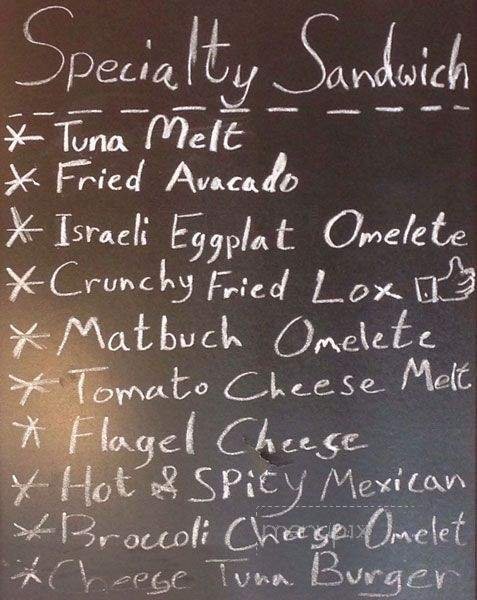 Specialty Sandwich
* Tuna Melt
* Fried Avacado
* Israeli Eggplat Omelete
* Crunchy Fried Lox
* Matbuch Omelete
* Tomato Cheese Melt
* Flagel Cheese
* Hot & SPicy Mexican
* Broccoli Cheese Omelet
* Cheese Tuna Burger